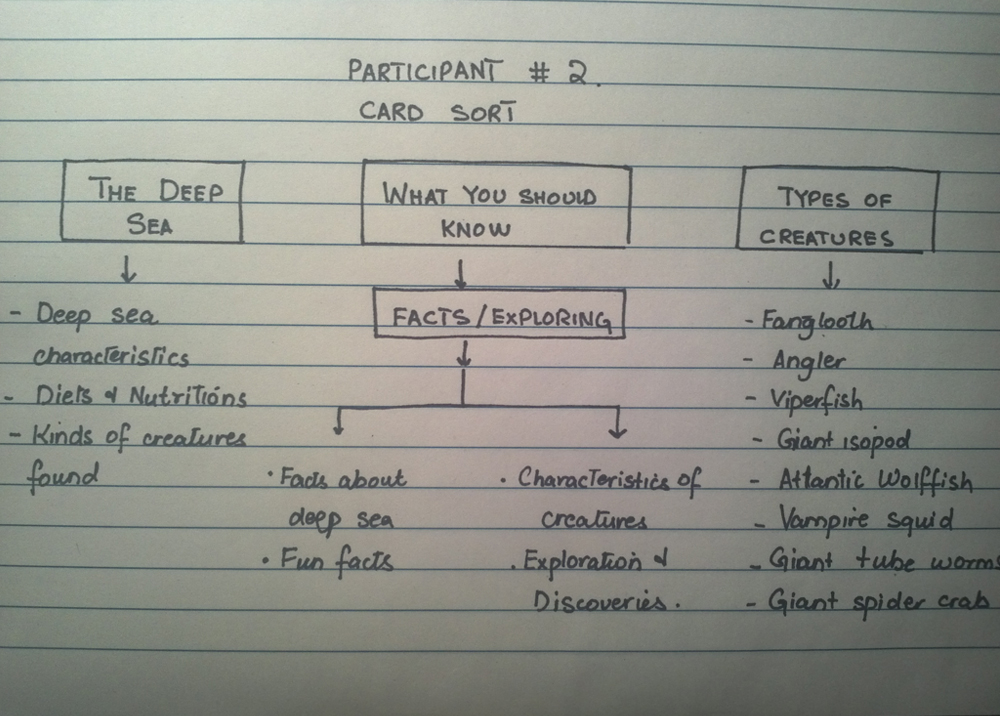 PARTICIPANT # 2.
CARD SORT
THE DEEP
SEA
- Deep sea
characteristics
- Diets & Nutritions
- Kinds of creatures
found
WHAT YOU SHOULD
KNOW
FACTS/EXPLORING
• Facts about
deep sea
• Fun facts
• Characteristics of
creatures
• Exploration &
Discoveries.
TYPES OF
CREATURES
- Fangtooth
- Angler
- Viperfish
- Giant isopod
- Atlantic Wolffish
- Vampire squid
- Giant tube worms
- Giant spider crab